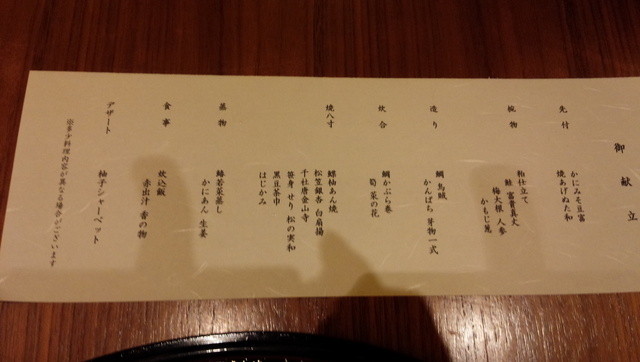 御献立
先付
かにみそ豆富
焼あげぬた和
椀物
粕仕立て
鮭 富貴真丈
梅大根 人参
かもじ葱
造り
鯛 烏賊
かんぱち 芽物一式
炊合
鯛かぶら巻
筍 菜の花
焼八寸
鰈柚あん焼
松笠銀杏 白扇揚
千社唐金山寺
笹身 せり 松の実和
黒豆茶巾
はじかみ
蒸物
鰆若菜蒸し
かにあん 生姜
食事
炊込飯
赤出汁 香の物
デザート
柚子シャーベット
※多少料理内容が異なる場合がございます